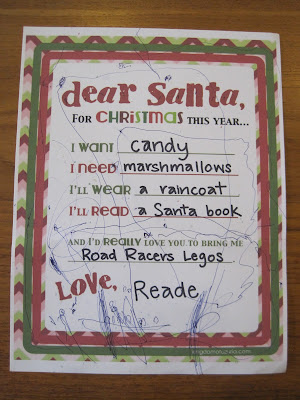 dear Santa,
FOR CHRISTMAS THIS YEAR...
I WANT candy
I NEED marshmallows
I'LL WEAR a raincoat
I'LL READ a Santa book
AND I'D REALLY LOVE YOU TO BRING ME
Road Racers Legos
LOVE, Reade